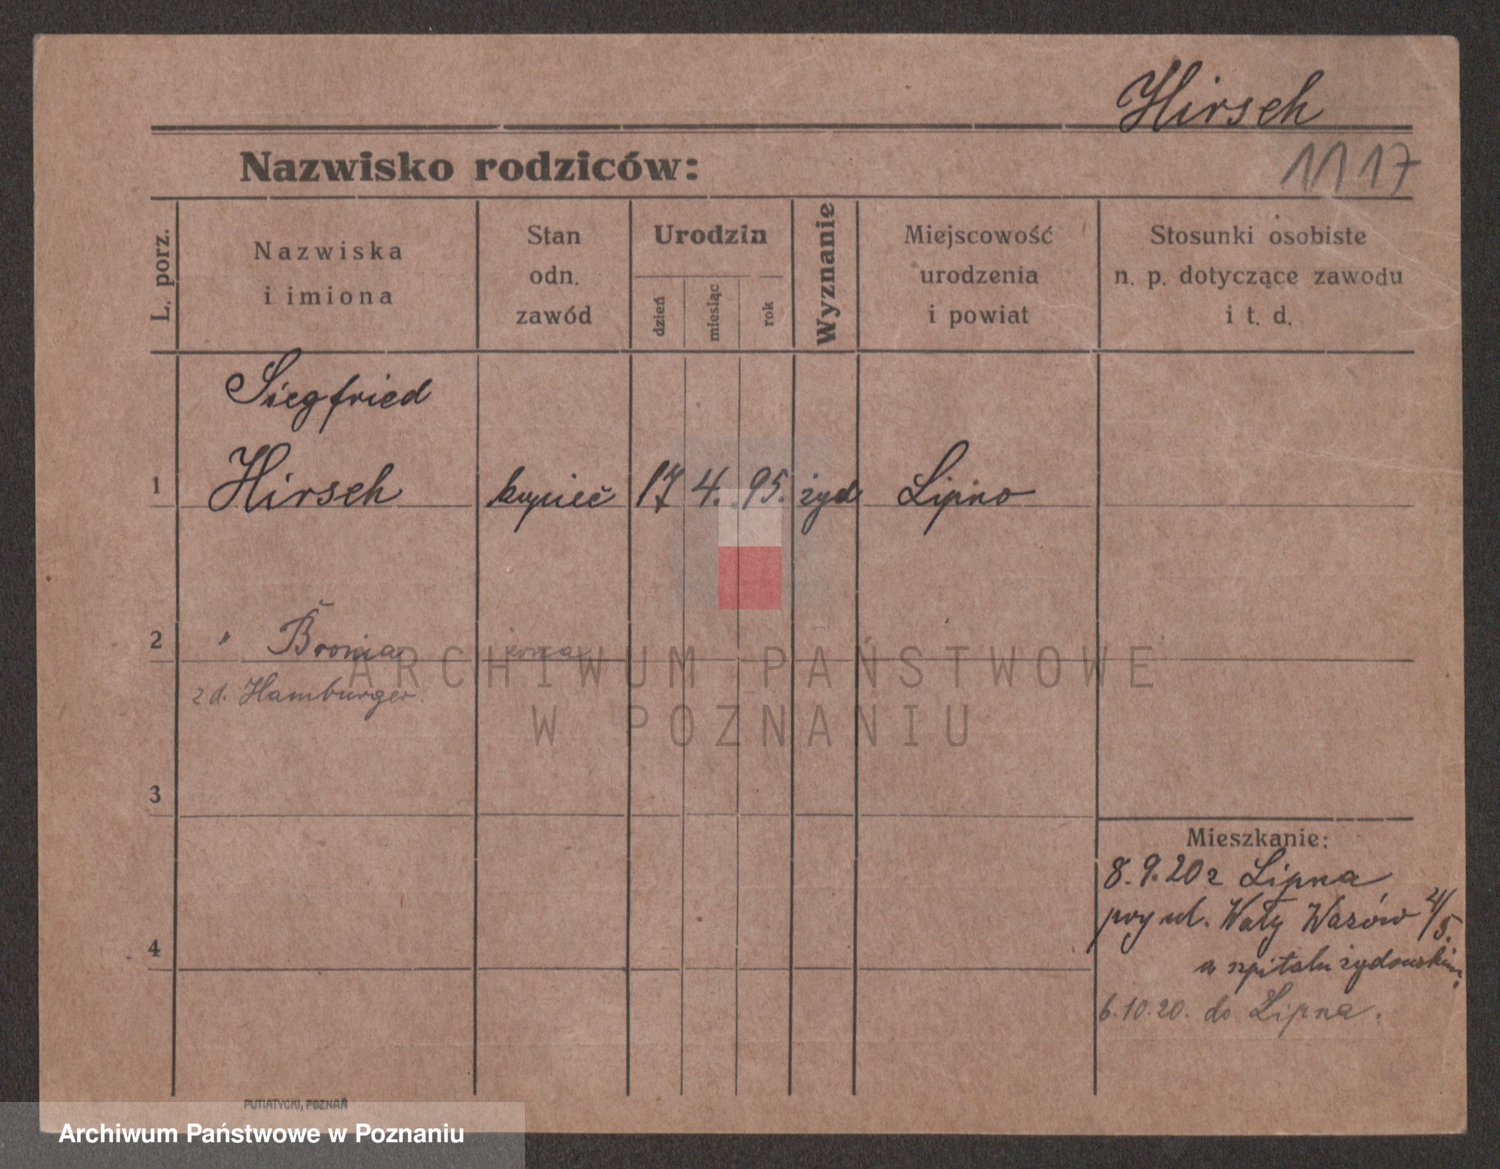 Hirsch
1117
Nazwisko rodziców:
L. porz.
Nazwiska
i imiona
Stan
odn.
zawód
Urodzin
dzień
miesiąc
rok
Wyznanie
Miejscowość
urodzenia
i powiat
Stosunki osobiste
n. p. dotyczące zawodu
i t. d.
Siegfried
1 Hirsch kupiec 17 4. 95. żyd Lipno
2 " Bronia żona
z d. Hamburger.
3
4
Mieszkanie:
8.9.20 z Lipna
przy ul. Wały Wazów 4/5.
w szpitalu żydowskim.
6.10.20. do Lipna.
PUTIATYCKI, POZNAŃ
ARCHIWUM PAŃSTWOWE
W POZNANIU
Archiwum Państwowe w Poznaniu